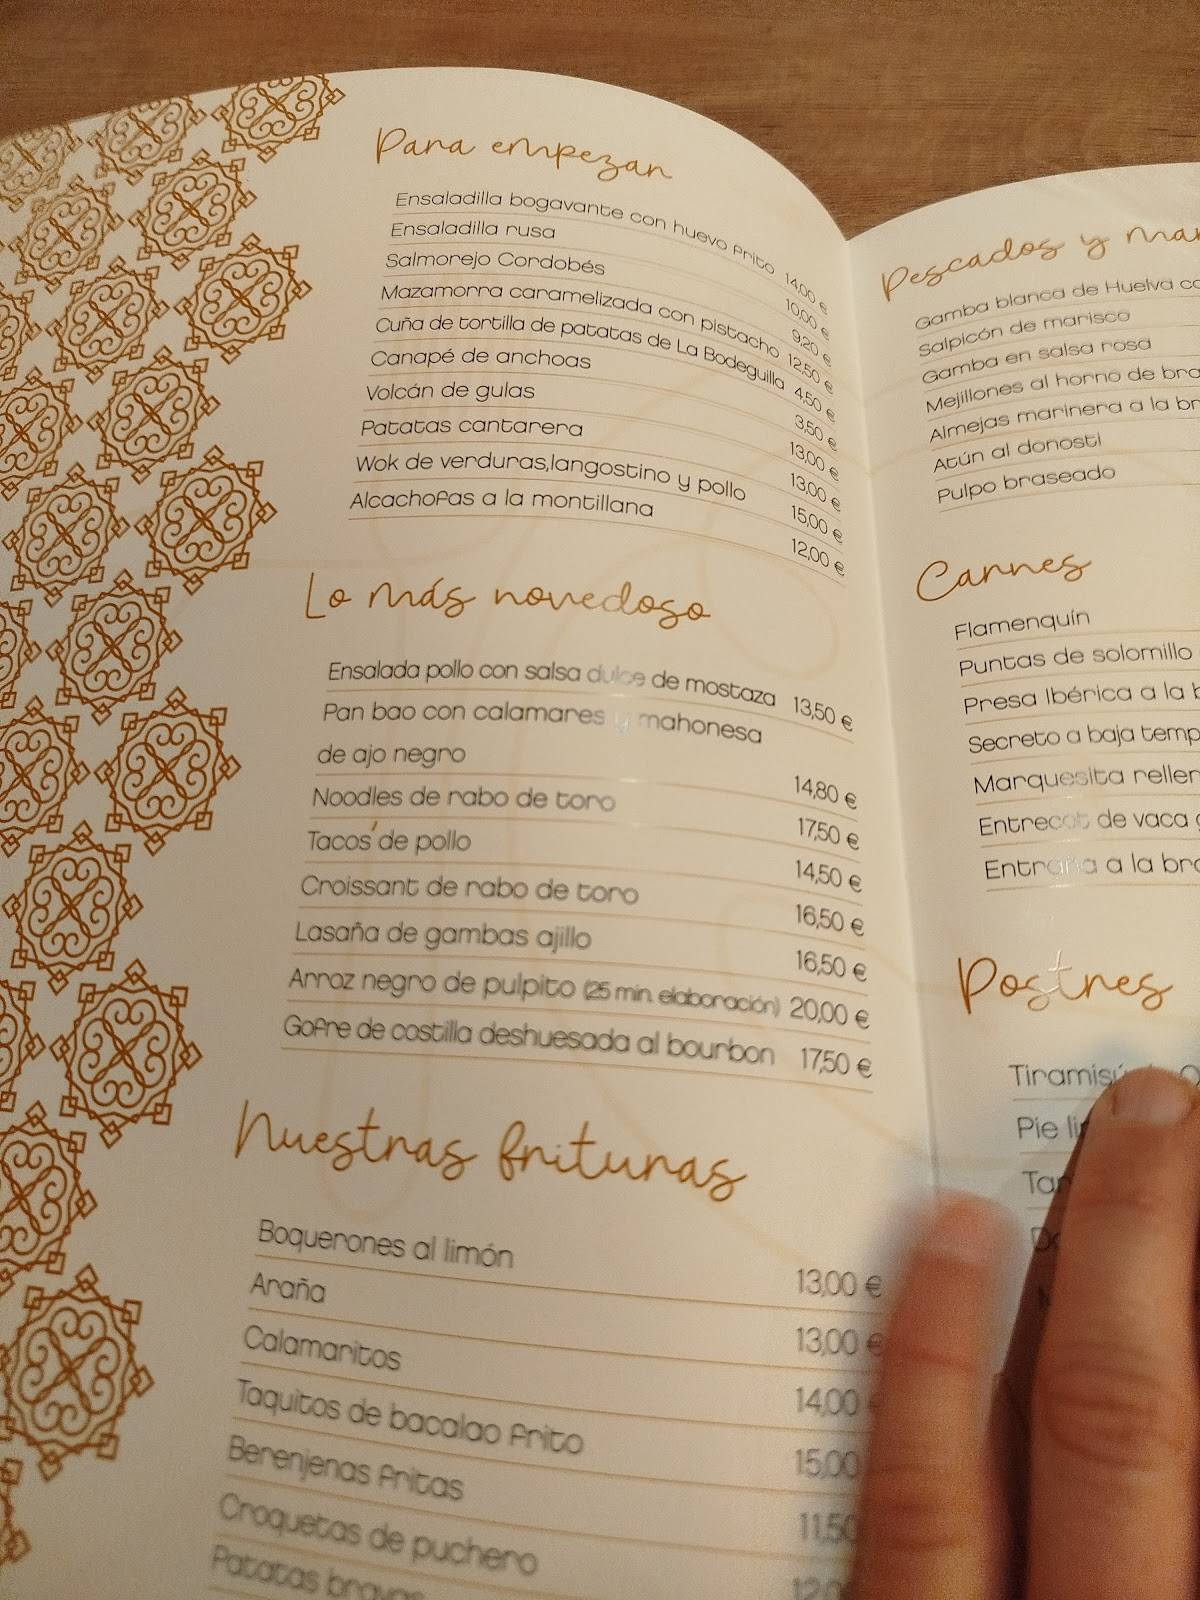 Para empezar
Ensaladilla bogavante con huevo frito 14,00 €
Ensaladilla rusa 10,00 €
Salmorejo Cordobés 9,20 €
Mazamorra caramelizada con pistacho 12,50 €
Cuña de tortilla de patatas de La Bodeguilla 4,50 €
Canapé de anchoas 3,50 €
Volcán de gulas 13,00 €
Patatas cantarera 13,00 €
Wok de verduras,langostino y pollo 15,00 €
Alcachofas a la montillana 12,00 €
Lo más novedoso
Ensalada pollo con salsa dulce de mostaza 13,50 €
Pan bao con calamares y mahonesa
de ajo negro 14,80 €
Noodles de rabo de toro 17,50 €
Tacos de pollo 14,50 €
Croissant de rabo de toro 16,50 €
Lasaña de gambas ajillo 16,50 €
Arroz negro de pulpito (25 min. elaboración) 20,00 €
Gofre de costilla deshuesada al bourbon 17,50 €
Nuestras frituras
Boquerones al limón 13,00 €
Araña 13,00 €
Calamaritos 14,00
Taquitos de bacalao frito 15,00
Berenjenas fritas 11,50
Croquetas de puchero 12,0
Patatas bravas
Pescados y mar
Gamba blanca de Huelva co
Salpicón de marisco
Gamba en salsa rosa
Mejillones al horno de bra
Almejas marinera a la br
Atún al donosti
Pulpo braseado
Carnes
Flamenquín
Puntas de solomillo
Presa Ibérica a la b
Secreto a baja temp
Marquesita rellen
Entrecot de vaca
Entraña a la bra
Postres
Tiramisú
Pie li
Tar